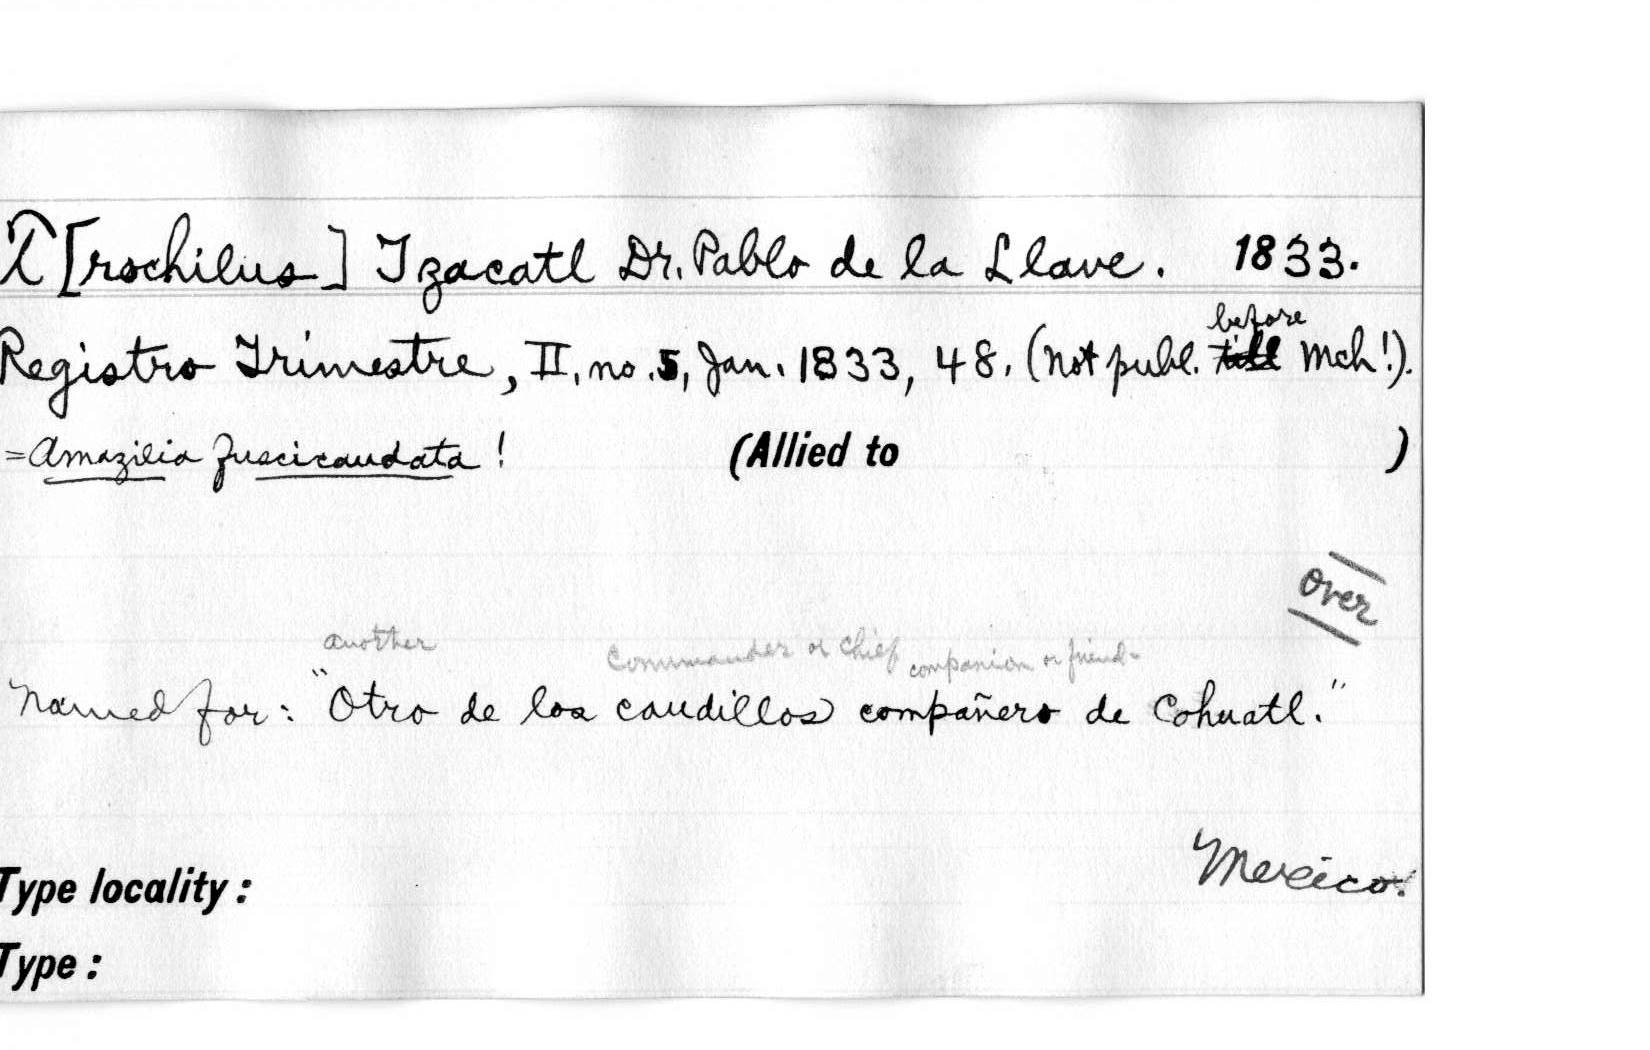 T[rochilus] Tzacatl Dr. Pablo de la Llave. 1833.
before
Registro Trimestre, II, no. 5, Jan. 1833, 48. (Not publ. till Mch!).
=Amazilia fuscicaudata! (Allied to )
Over
another commander or chief companion or friend-
Named for: "Otro de los caudillos compañero de Cohuatl."
Mexico.
Type locality:
Type: